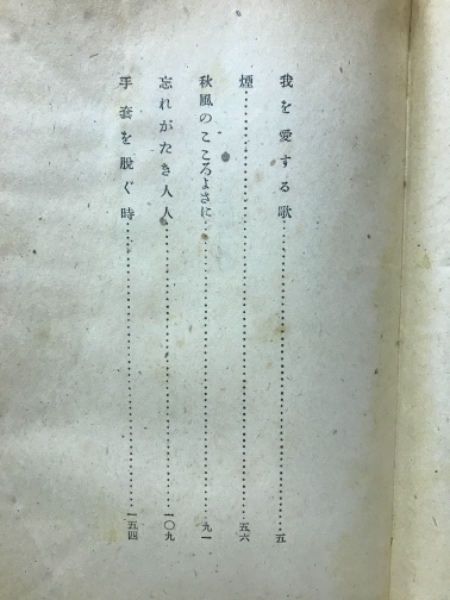 我を愛する歌……………………五
煙……………………五六
秋風のこころよさに……………………九一
忘れがたき人人……………………一〇九
手套を脱ぐ時……………………一五四